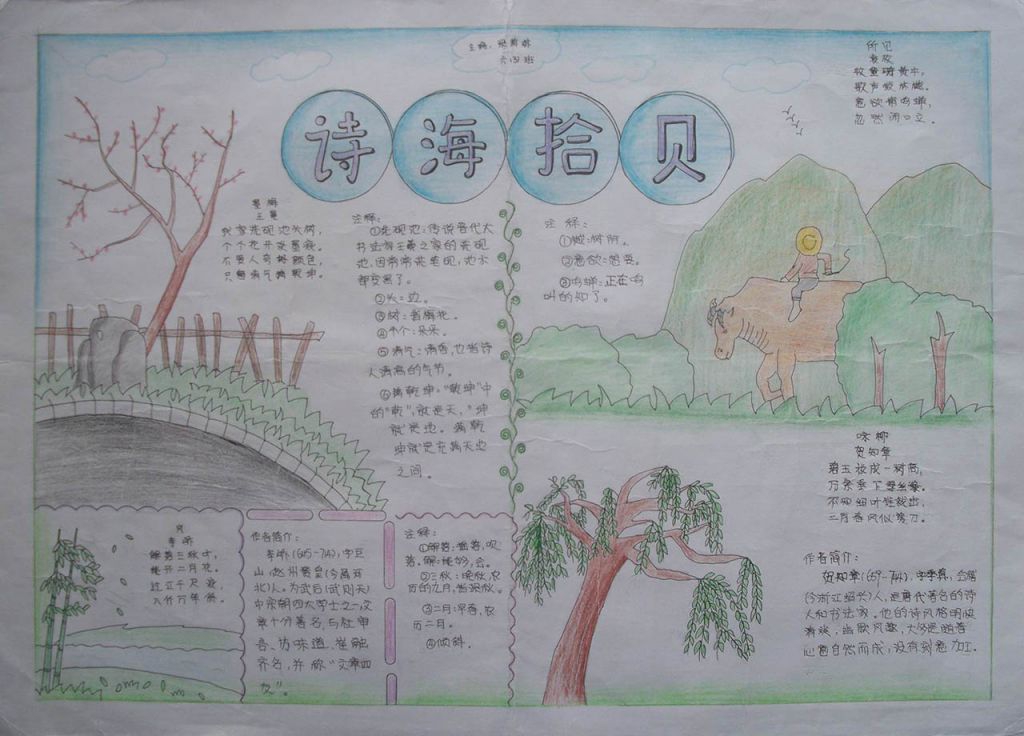 六四班
诗海拾贝
所见
袁枚
牧童骑黄牛，
歌声振林樾。
意欲捕鸣蝉，
忽然闭口立。
墨梅
王冕
我家洗砚池头树，
个个花开淡墨痕。
不要人夸好颜色，
只留清气满乾坤。
注释：
①洗砚池：传说晋代大
书法家王羲之家的洗砚
池，因常常来洗砚，池水
都变黑了。
②头：边。
③树：指梅花。
④个个：朵朵。
⑤清气：清香，也指诗
人清高的气节。
⑥满乾坤："乾坤"中
的"乾"，就是天，"坤
就是地。满乾
坤就是充满天地
之间。
注释：
①樾：树阴。
②意欲：想要。
③鸣蝉：正在鸣
叫的知了。
咏柳
贺知章
碧玉妆成一树高，
万条垂下绿丝绦。
不知细叶谁裁出，
二月春风似剪刀。
作者简介：
贺知章(659-744)，字季真，会稽
(今浙江绍兴)人，是唐代著名的诗
人和书法家。他的诗风格明快
风趣，大多是随着
心意自然而成，没有刻意加工。
风
李峤
解落三秋叶，
能开二月花。
过江千尺浪，
入竹万竿斜。
作者简介：
李峤(645-714)，字巨
山，赵州赞皇(今属河
北)人。为武后(武则天)
中宗朝四大学士之一，文
章十分著名，与杜审
言、苏味道、崔融
齐名，并称"文章四
友"。
注释：
①解落：吹
落。解：能够，会。
②三秋：晚秋，农
历的九月，指深秋。
③二月：早春，农
历二月。
④倾斜。